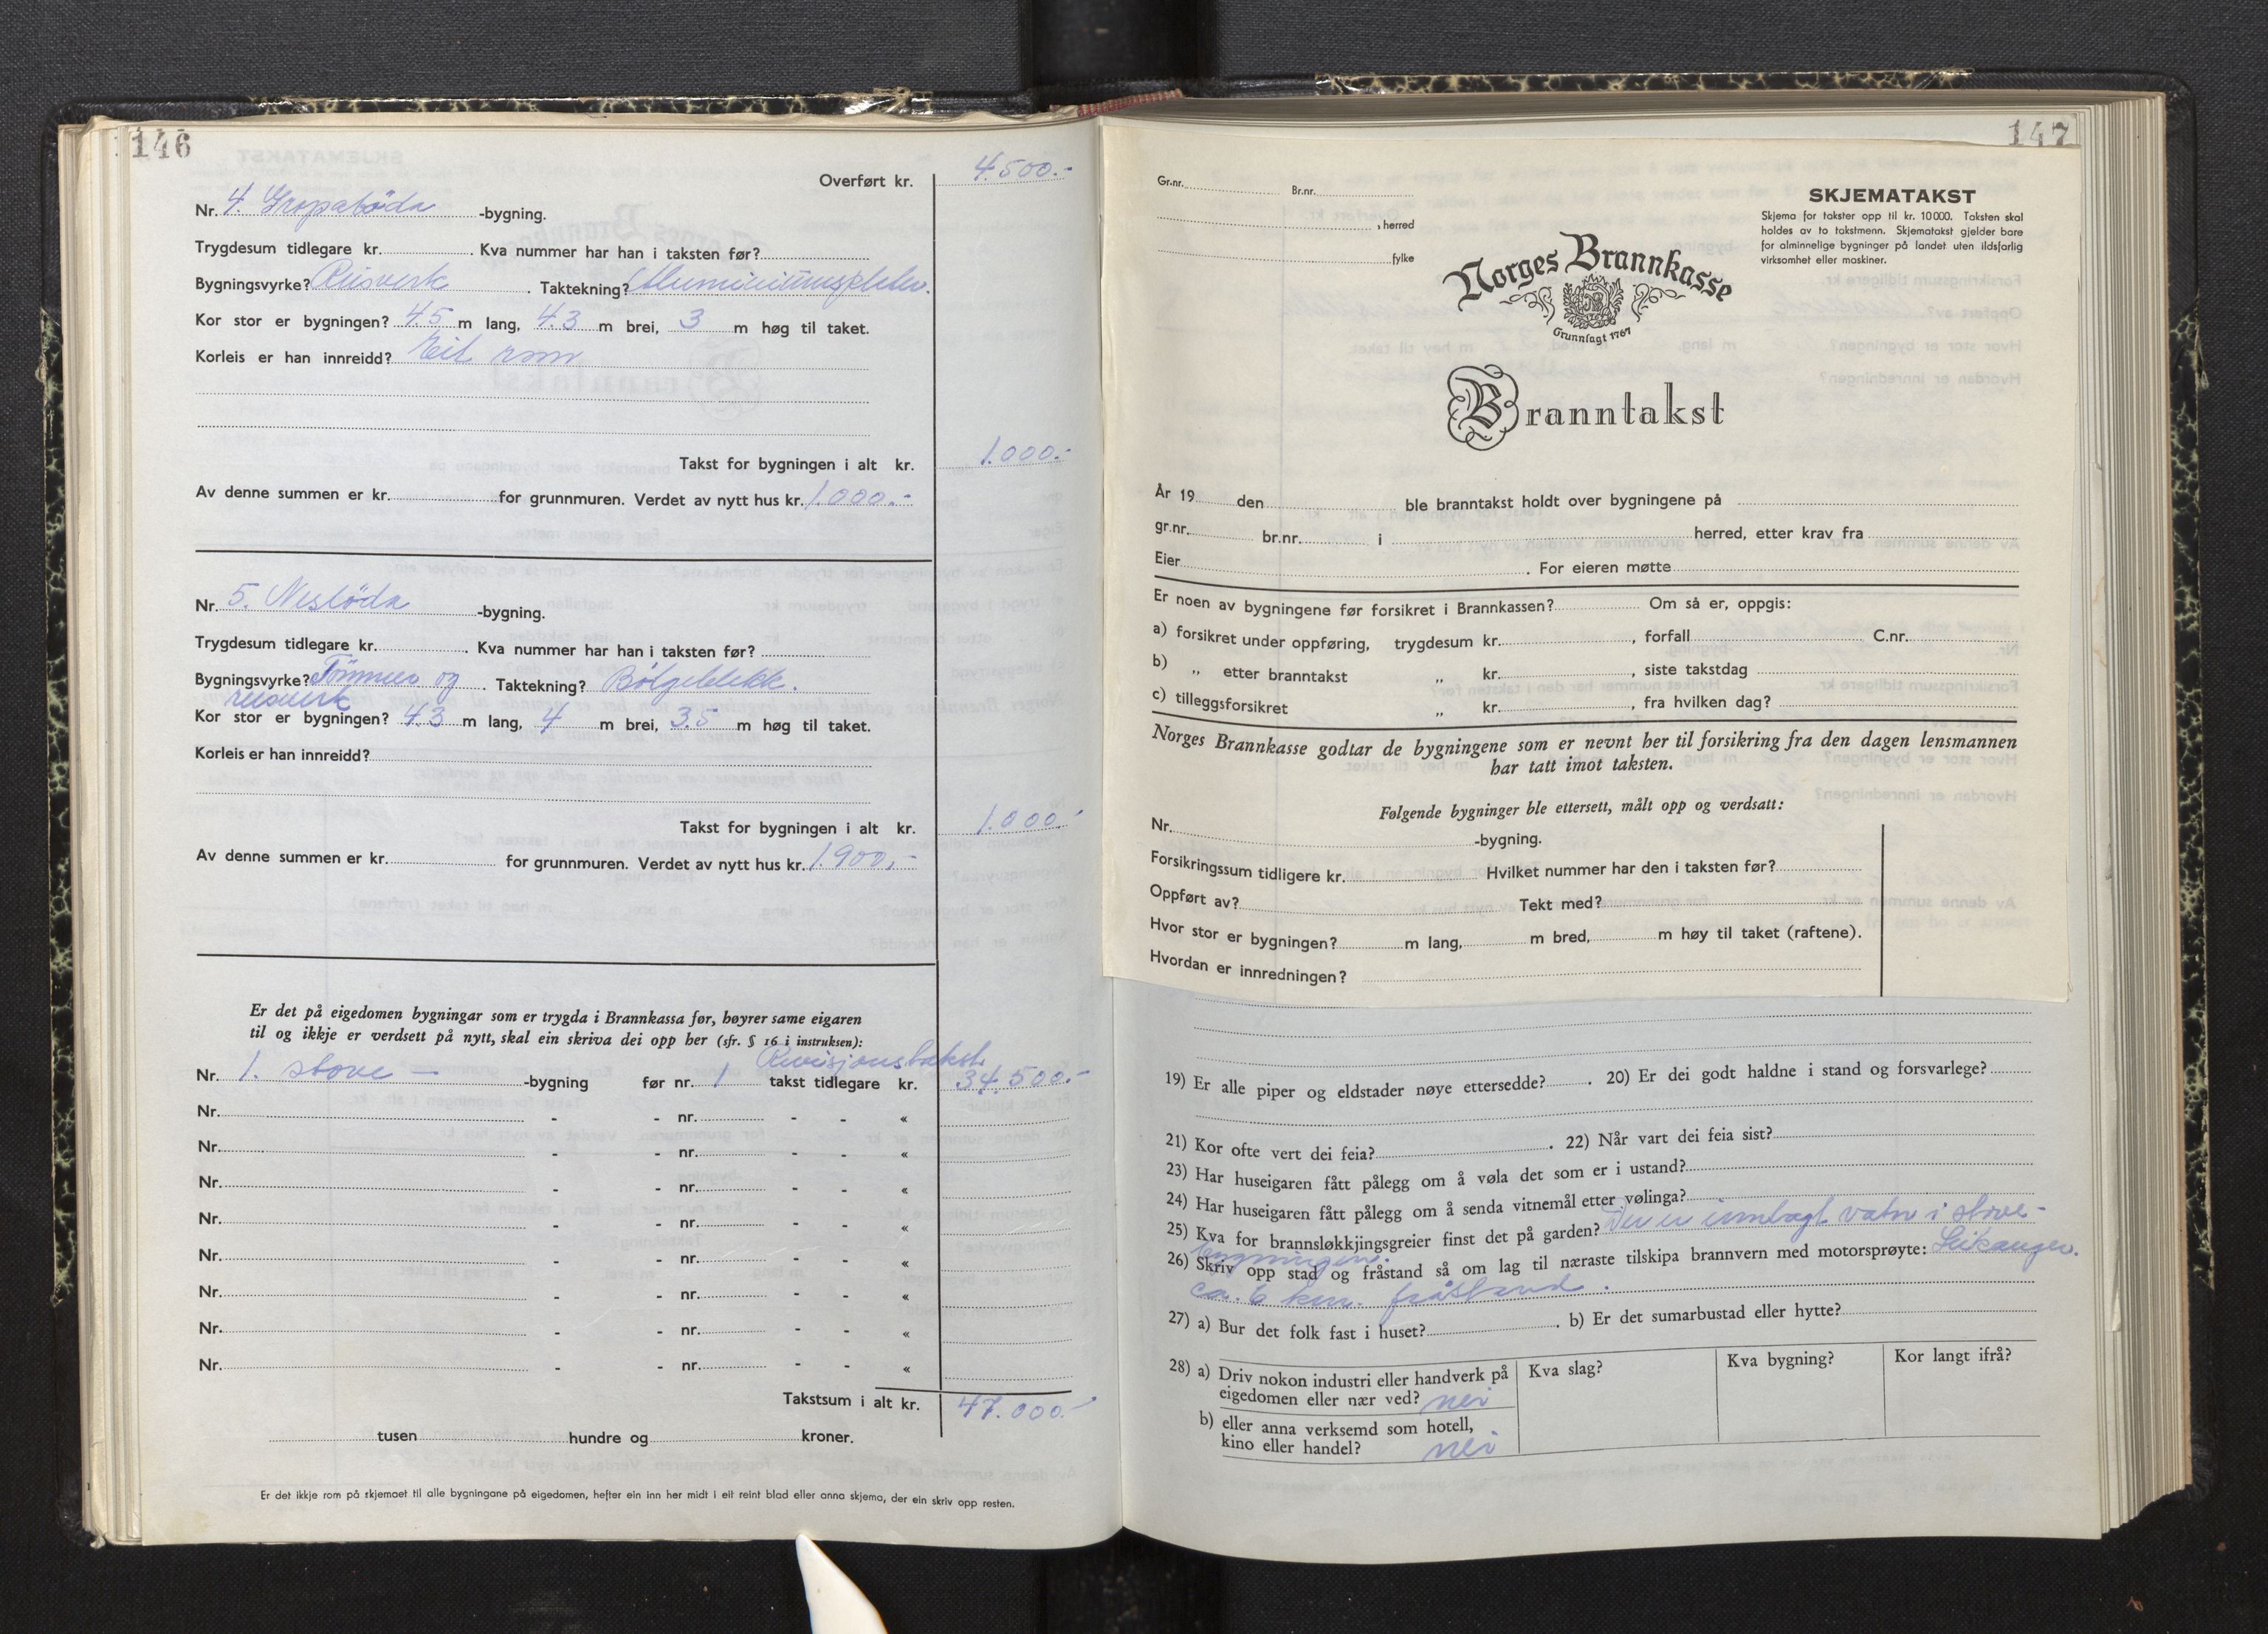 146
Overført kr. 4.500.-
Nr. 4. Gropaböda -bygning.
Trygdesum tidlegare kr. Kva nummer har han i taksten før?
Bygningsvyrke? Reisverk . Taktekning? Aluminiumsplater.
Kor stor er bygningen? 4.5 m lang, 4.3 m brei, 3 m høg til taket.
Korleis er han innreidd? Eit rom
Takst for bygningen i alt kr. 1.000.-
Av denne summen er kr. for grunnmuren. Verdet av nytt hus kr. 1.000.-
Nr. 5. Neslöda -bygning.
Trygdesum tidlegare kr. Kva nummer har han i taksten før?
Bygningsvyrke? Tömmer og . Taktekning? Bölgeblekk.
reisverk
Kor stor er bygningen? 4.3 m lang, 4 m brei, 3.5 m høg til taket.
Korleis er han innreidd?
Takst for bygningen i alt kr. 1.000.-
Av denne summen er kr. for grunnmuren. Verdet av nytt hus kr. 1.900,-
Er det på eigedomen bygningar som er trygda i Brannkassa før, høyrer same eigaren
til og ikkje er verdsett på nytt, skal ein skriva dei opp her (sfr. § 16 i instruksen):
Revisjonstakst.
Nr. 1. stove – -bygning før nr. 1 takst tidlegare kr. 34.500.-
Nr. - - nr. - - «
Nr. - - nr. - - «
Nr. - - nr. - - «
Nr. - - nr. - - «
Nr. - - nr. - - «
Nr. - - nr. - - «
Nr. - - nr. - - «
Nr. - - nr. - - «
Takstsum i alt kr. 47.000.-
tusen hundre og kroner.
Er det ikkje rom på skjemaet til alle bygningane på eigedomen, hefter ein inn her midt i eit reint blad eller anna skjema, der ein skriv opp resten.
147
Gr.nr. Br.nr.
, herred
fylke
SKJEMATAKST
Skjema for takster opp til kr. 10 000. Taksten skal
holdes av to takstmenn. Skjematakst gjelder bare
for alminnelige bygninger på landet uten ildsfarlig
virksomhet eller maskiner.
Norges Brannkasse
Grunnlagt 1767
Branntakst
År 19 den ble branntakst holdt over bygningene på
gr.nr. br.nr. i herred, etter krav fra
Eier . For eieren møtte
Er noen av bygningene før forsikret i Brannkassen? Om så er, oppgis:
a) forsikret under oppføring, trygdesum kr. , forfall C.nr.
b) „ etter branntakst „ kr. , siste takstdag
c) tilleggsforsikret „ kr. , fra hvilken dag?
Norges Brannkasse godtar de bygningene som er nevnt her til forsikring fra den dagen lensmannen
har tatt imot taksten.
Følgende bygninger ble ettersett, målt opp og verdsatt:
Nr. -bygning.
Forsikringssum tidligere kr. Hvilket nummer har den i taksten før?
Oppført av? Tekt med?
Hvor stor er bygningen? m lang, m bred, m høy til taket (raftene).
Hvordan er innredningen?
19) Er alle piper og eldstader nøye ettersedde? . 20) Er dei godt haldne i stand og forsvarlege?
21) Kor ofte vert dei feia? . 22) Når vart dei feia sist?
23) Har huseigaren fått pålegg om å vøla det som er i ustand?
24) Har huseigaren fått pålegg om å senda vitnemål etter vølinga?
25) Kva for brannsløkkjingsgreier finst det på garden? Der er innlagt vatn i stove-
bygningen.
26) Skriv opp stad og fråstand så om lag til næraste tilskipa brannvern med motorsprøyte: Leikanger.
ca. 6 km. fråstand.
27) a) Bur det folk fast i huset? . b) Er det sumarbustad eller hytte?
28) a) Driv nokon industri eller handverk på Kva slag? Kva bygning? Kor langt ifrå?
eigedomen eller nær ved? nei
b) eller anna verksemd som hotell,
kino eller handel? nei